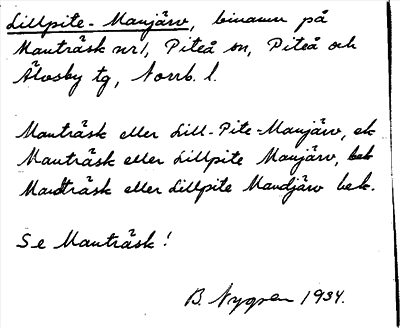 Lillpite-Manjärv, binamn på
Manträsk nr1, Piteå sn, Piteå och
Älvsby tg, Norrb. l.
Manträsk eller Lill-Pite-Manjärv, ek
Manträsk eller Lillpite Manjärv, bek
Mandträsk eller Lillpite Mandjärv bek.
Se Manträsk!
B. Nygren 1934.